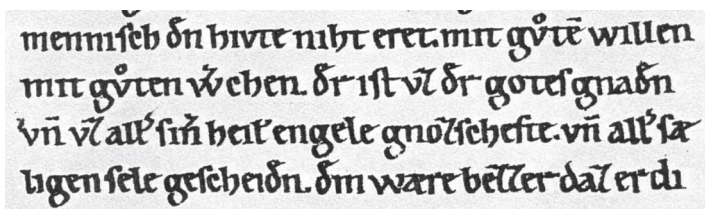 menniſch đn hivte niht eret. mit gůtē willen
mit gůten w͛chen. đr iſt vz đr goteſ gnađn
vn̄ vz all͛ ſin͛ heil͛ engele gnozſchefte. vn̄ all͛ ſæ
ligen ſele geſcheiđn. đm wære bezzer daz er di